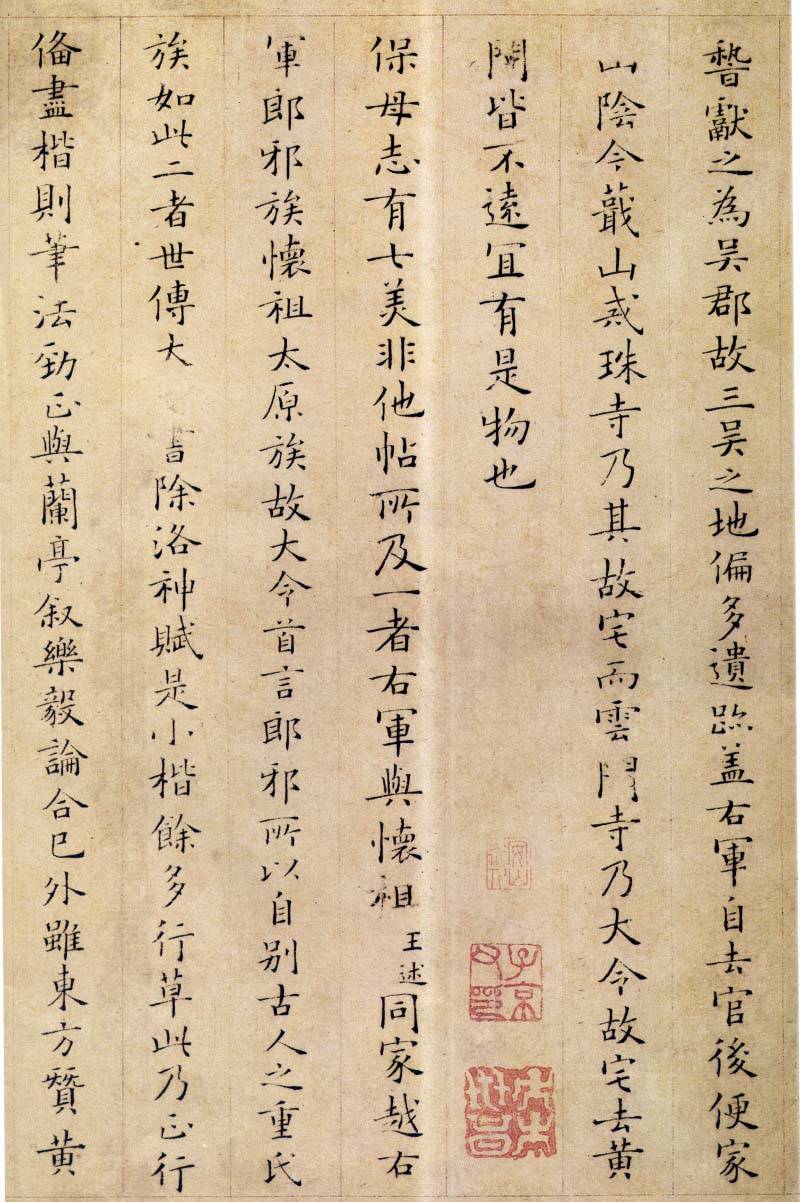 嘗獻之為吴郡故三吴之地偏多遺跡盖右軍自去官後便家
山陰今蕺山戒珠寺乃其故宅而雲門寺乃大令故宅去黄
閍皆不遠宜有是物也
保母志有七美非他帖所及一者右軍與懷祖王述同家越右
軍郎邪族懷祖太原族故大令首言郎邪所以自别古人之重氏
族如此二者世傳大 書除洛神賦是小楷餘多行草此乃正行
俻盡楷則筆法勁正與蘭亭叙樂毅論合已外雖東方贊黄
子京父印